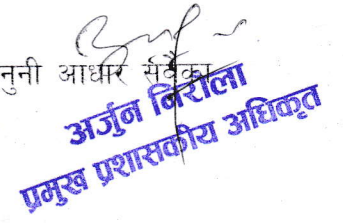 नुनी आधार सबैका
अर्जुन निरौला
प्रमुख प्रशासकीय अधिकृत